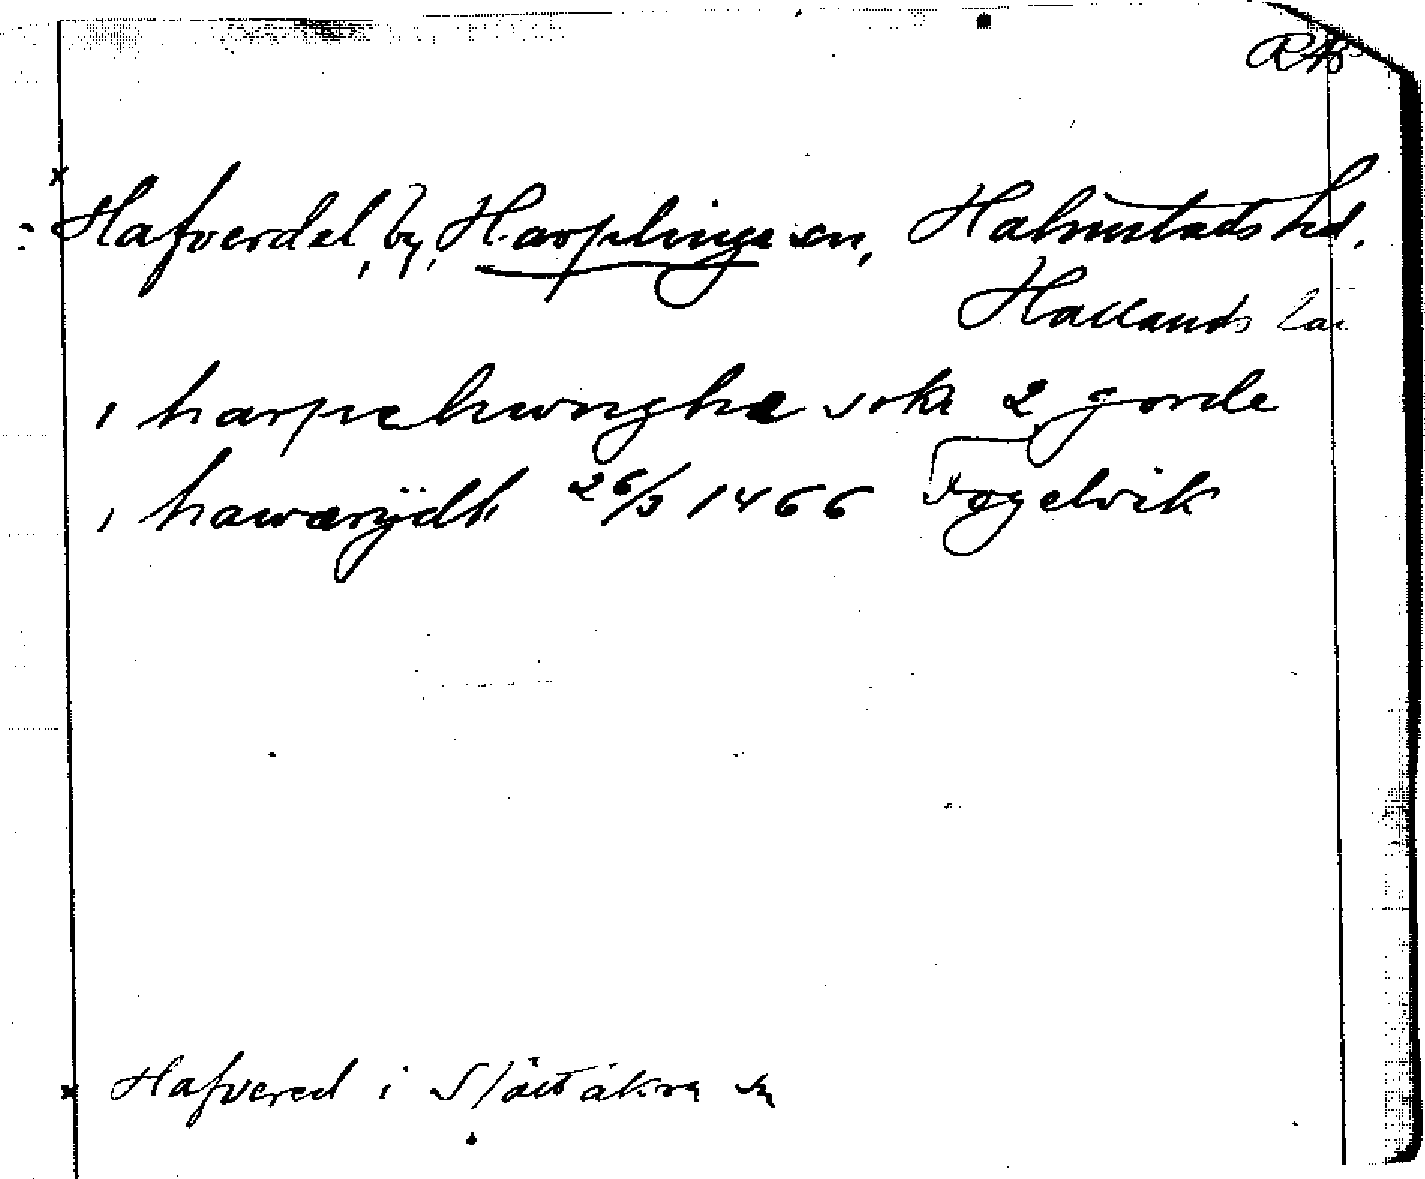 RAP
Hafverdel, by, Harplinge sn, Halmstads hd.
Hallands län
i harpelwnghæ sokn 2 gorde
i hawærydh 26/3 1466 Fogelvik
Hafvered i Slättåkra sn